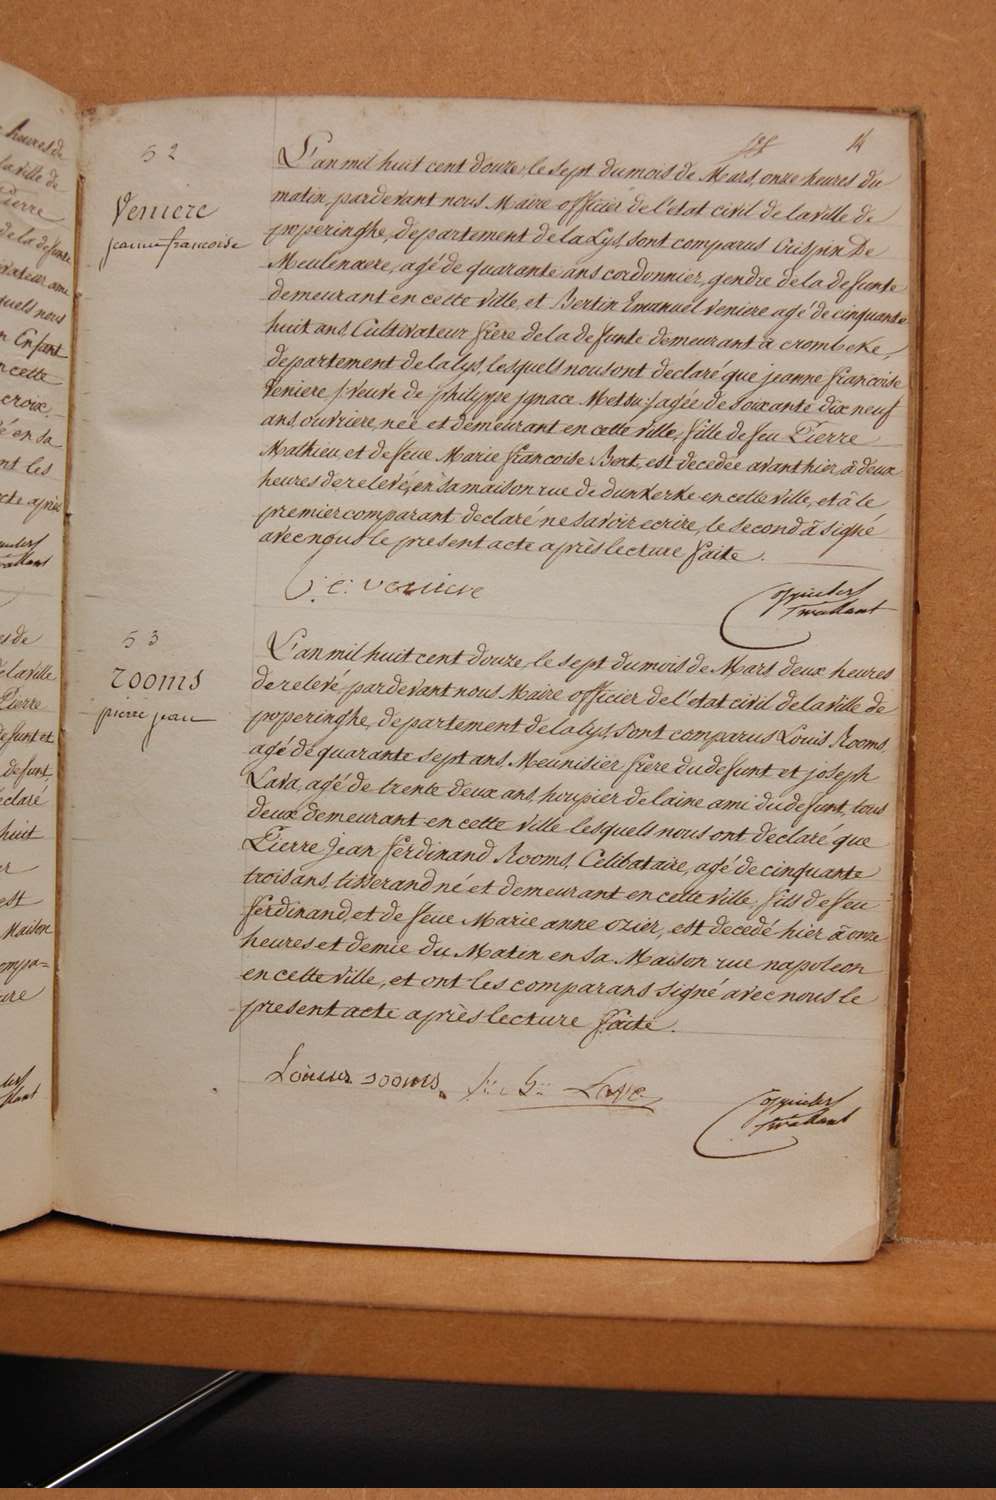 14
52
Veniere
jeanne francoise
L'an mil huit cent douze, le sept du mois de Mars, onze heures du
matin, pardevant nous Maire officier de l'etat civil de la ville de
poperinghe, departement de la Lys, sont comparus Crispin De
Meulenaere, agé de quarante ans cordonnier, gendre de la defunte
demeurant en cette ville, et Bertin Emanuel Veniere agé de cinquante
huit ans, Cultivateur frere de la defunte demeurant a crombeke,
departement de la lys, lesquels nous ont declaré que jeanne francoise
Veniere /: veuve de philippe jgnace Metsu :/ agée de soixante dix neuf
ans, ouvriere, née et demeurant en cette ville, fille de feu Pierre
Mathieu et de feue Marie francoise Bert, est decedée avant hier, à deux
heures de relevé, en sa maison rue de dunkerke en cette ville, et à le
premier comparant declaré ne savoir ecrire, le second à signé
avec nous le present acte après lecture faite.
veniere
53
rooms
pierre jean
L'an mil huit cent douze, le sept du mois de Mars deux heures
de relevé, pardevant nous Maire officier de l'etat civil de la ville de
poperinghe, departement de la lys, sont comparus Louis Rooms,
agé de quarante sept ans, Meunisier frere du defunt et joseph
Lava, agé de trente deux ans, houpier de laine ami du defunt, tous
deux demeurant en cette ville lesquels nous ont declaré que
Pierre Jean ferdinand Rooms, Celibataire, agé de cinquante
trois ans, tisserand né et demeurant en cette ville, fils de feu
ferdinand, et de feue Marie anne ozier, est decedé hier à onze
heures et demie du Matin en sa Maison rue napoleon
en cette ville, et ont les comparans signé avec nous le
present acte après lecture faite.
rooms